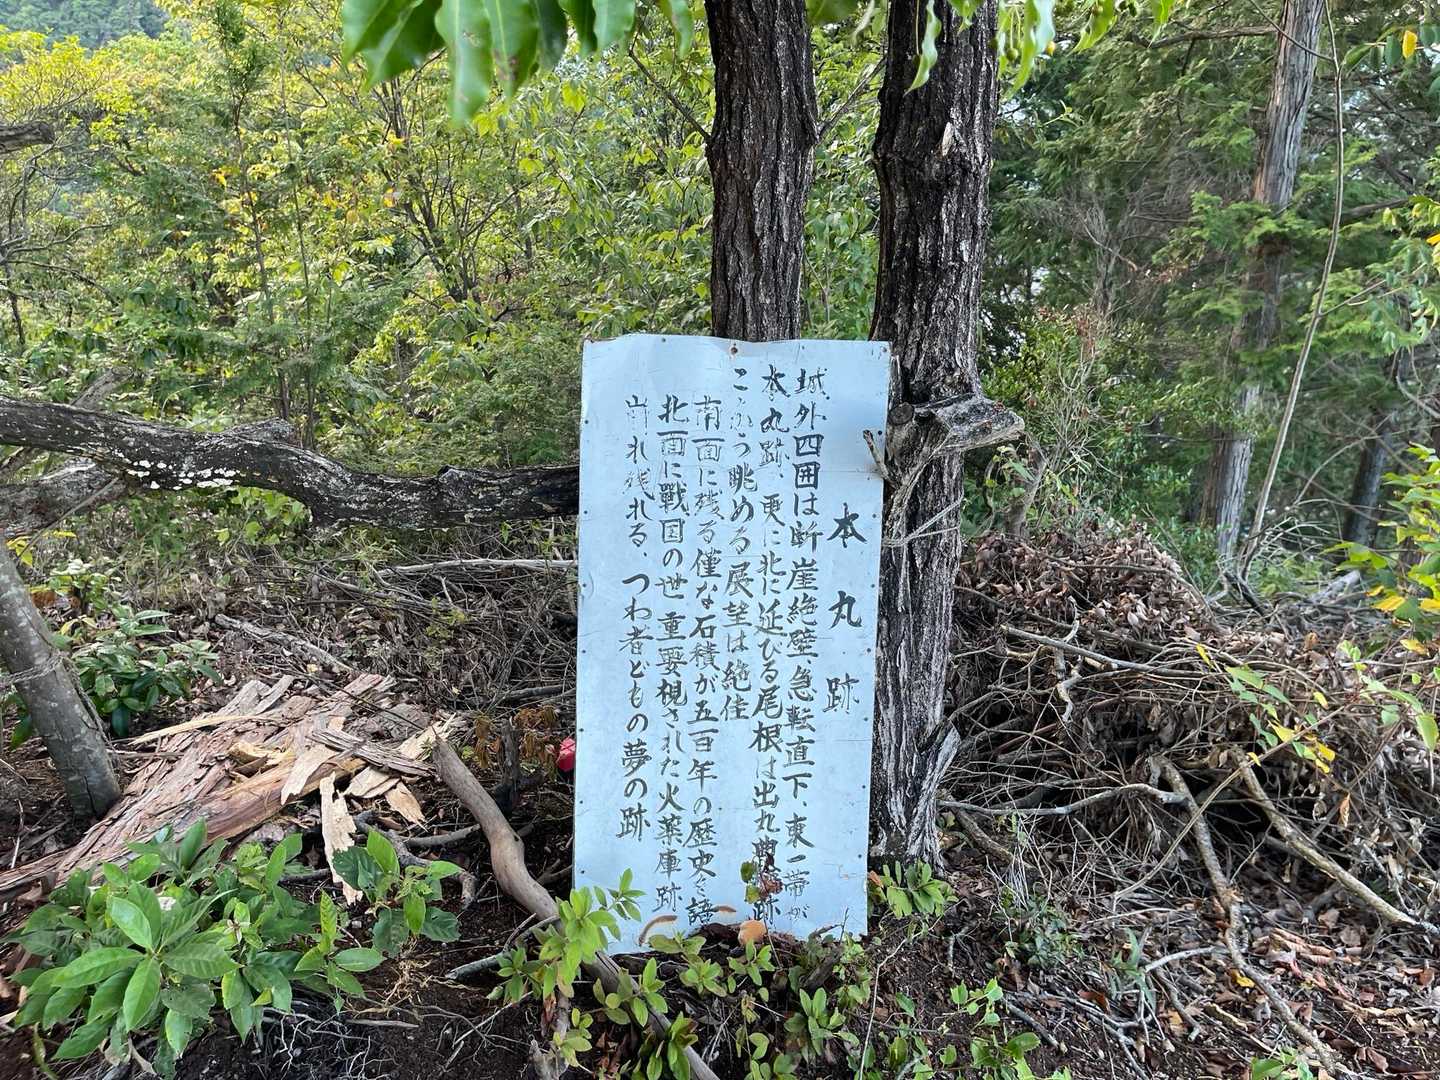 本丸跡
城外四囲は断崖絶壁急転直下、東一帯が
本丸跡、更に北に延びる尾根は出丸曲跡
こゝから眺める展望は絶佳
南面に残る僅な石積が五百年の歴史を語
北面に戰国の世重要視された火薬庫跡
崩れ残れる、つわ者どもの夢の跡